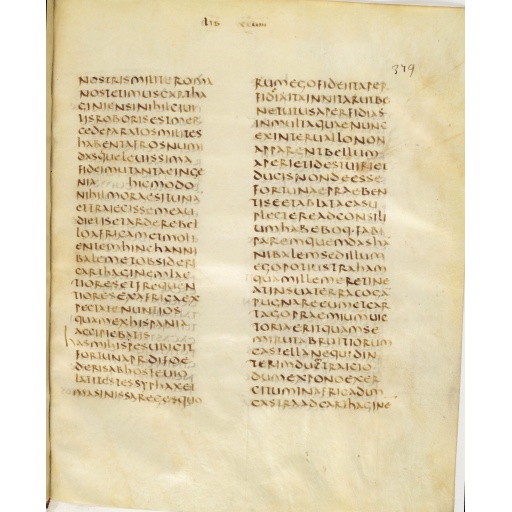 LIB XXVIII
379
NOSTRISMILITEROMA
NOSTETIMUSCARTHA
GINIENSINIHILCIUI
LISROBORISESTMER
CEDEPARATOSMILITES
HABENTAFROSNUMI
DASQUELEUISSIMA
FIDEIMUTANTAEINGE
NIA HICMODO
NIHILMORAESITUNA
ETTRAIECISSEMEAUI
DIETISETARDEREBEL
LOAFRICAMETMOLI
ENTEMHINCHANNI
BALEMETOBSIDERI
CARTHAGINEMLAE
TIORESETFREQUEN
TIORESEXAFRICAEX
PECTATENUNTIOS
QUAMEXHISPANIA
ACCIPIEBATIS
HASMIHISPESUBICIT
FORTUNAPRDIFOE
DERISABHOSTEUIO
LATITESTESSYPHAXET
MASINISSAREGESQUO
RUMEGOFIDEIITAPER
FIDIAITAINNITARUTBE
NETUTUSAPERFIDIAS
INMULTAQUAENUNC
EXINTERUALLONON
APPARENTBELLUM
APERIETIDESTUIRIET
DUCISNONDEESSE
FORTUNAEPRAEBEN
TISEETABLATACASU
PLECTEREADCONSILI
UMHABEBOQ·FABI
PAREMQUEMDASHA
NIBALEMSEDILLUM
EGOPOTIUSTRAHAM
QUAMILLEMERETINE
ATINSUATERRACOGA
PUGNAREEUMETCAR
TAGOPRAEMIUMUIC
TORIAERITQUAMSE
MIRUTABRUTTIORUM
CASTELLANEQUIDIN
TERIMDUMTRAICIO
DUMEXPONOEXER
CITUMINAFRICADUM
CASTRAADCARTHAGINE